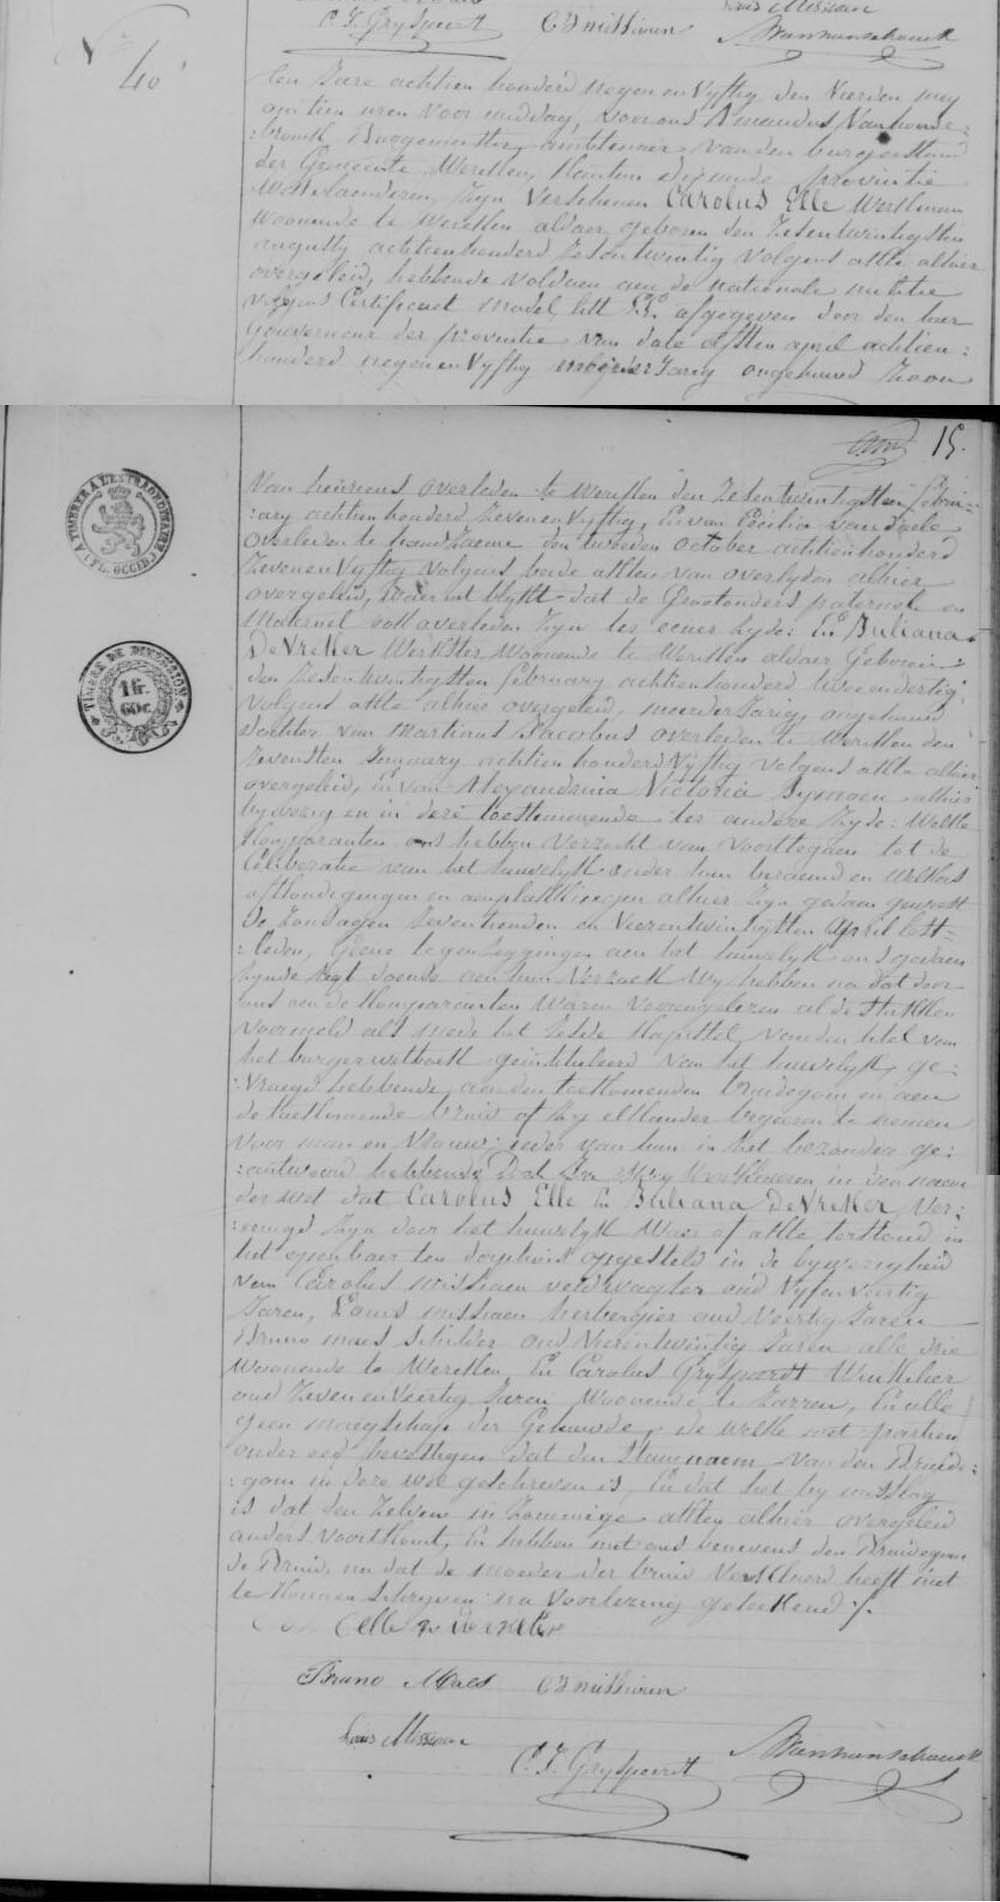 C. F. Gryspeerdt C J missiaen Louis Missiaen
No
40
Ten Jare achtien honderd negen en Vyftig den Vierden mey
om tien uren voor middag, voor ons Amandus Vanhoucke
Burgemeester ambtenaer van den burgerstand
der Gemeente Werken, Kanton provintie
WestVlaenderen, Zyn Verschenen Carolus Elle Werkman
woonende te Werken aldaer geboren den Zesentwintigsten
augusty achtienhonderd Zesentwintig volgens akte alhier
overgeleid, hebbende voldaen aen de nationale militie
volgens Certificaet model litt afgegeven door den heer
Gouverneur der provintie van date elfsten april achtien:
honderd negen en Vyftig meerderJarig ongehuwd Zoon
15.
Van overleden te Werken den Zesentwintigsten februa:
:ary achtienhonderd Zeven en Vyftig, En van Cecilia van daele
Overleden te handZaeme den tweeden October achtienhonderd
Zeven en Vyftig volgens beide akten van overlyden alhier
overgeleid, waer uit blykt dat de Grootouders paternele en
Maternel ook overleden Zyn ter eener Zyde: En Juliana
DeVreker Werkster woonende te Werken aldaer Geboren
den Zesentwintigsten february achtienhonderd tweeendertig
volgens akte alhier overgeleid, meerderJarig, ongehuwd
dochter van Martinus Jacobus overleden te Werken den
Zevensten January achtien honderd Vyftig volgens akte alhier
overgeleid, en van Alexandrina Victoria Symoen alhier
bywezig en in deze toestemmende ter andere Zyde: Welke
Komparanten ons hebben verzocht van voorttegaen tot de
Celibratie van het huwelyk onder hun beraemd en welkers
afkondigingen en aenplakkingen alhier Zyn gedaen geweest
de Zondagen Zeventienden en Vierentwintigsten April lest-
:leden, Geene tegenzeggingen aen het huwelyk ons gedaen
Zynde regt doende aen hun Verzoek wy hebben na dat door
ons aen de Komparanten waren voorengelezen al de stukken
voormeld als mede het Zesde Kapittel van den titel van
het burger wetboek geintituleerd van het huwelyk, ge:
:vraegd hebbende aen den toekomenden bruidegom en aen
de toekomende bruid of Zy elkander begeeren te nemen
voor man en Vrouw: ieder van hun in het bezonder ge:
:antwoord hebbende Dat Jae Wy Verklaeren in den naem
der wet dat Carolus Elle En Juliana DeVreker Ver:
:eenigd Zyn door het huwelyk Waer af akte terstond in
het openbaer ten dorphuis opgesteld in de bywezigheid
van Carolus missiaen veldwagter oud Vyfenveertig
Jaren, Louis missiaen herbergier oud Veertig Jaren
Bruno maes schilder oud Vierentwintig Jaren alle drie
woonende te Werken En Carolus Gryspeerdt Winkelier
oud Zeven en Veertig Jaren woonende te Zarren, En alle
geen maegschap der Gehuwde, de welke met partien
onder eed bevestigen dat den Stamnaem van den Bruide:
:gom in deze wel geschreven is, En dat het by misslag
is dat den Zelven in Zommige akten alhier overgeleid
anders voorkomt, En hebben met ons benevens den Bruidegom
de Bruid, na dat de moeder der bruid Verklaerd heeft niet
te Konnen schryven na voorlezing geteekend ./.
Elle
Bruno Maes C J missiaen
Louis Missiaen
C. F. Gryspeerdt
A TIMBRER A L'EXTRAORDINAIRE
(FL. OCCID.)
TIMBRE DE DIMENSION
1 fr.
60 c.